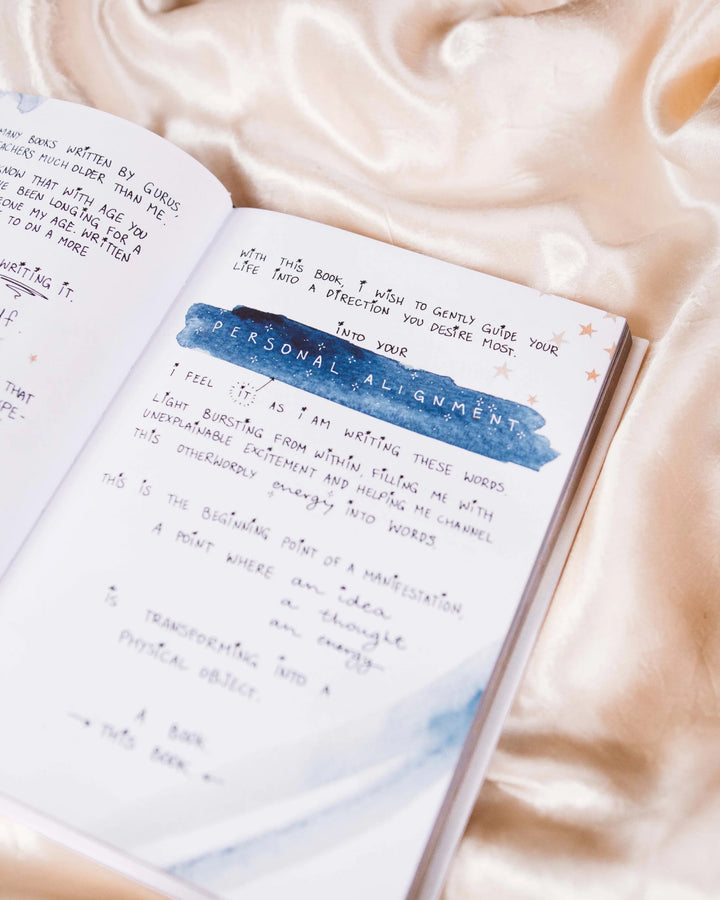 MANY BOOKS WRITTEN BY GURUS,
TEACHERS MUCH OLDER THAN ME.
KNOW THAT WITH AGE YOU
BEEN LONGING FOR A
MY AGE. WRITTEN
TO ON A MORE
WRITING IT.
THAT
WITH THIS BOOK, I WISH TO GENTLY GUIDE YOUR
LIFE INTO A DIRECTION YOU DESIRE MOST.
INTO YOUR
PERSONAL ALIGNMENT
I FEEL IT AS I AM WRITING THESE WORDS.
LIGHT BURSTING FROM WITHIN, FILLING ME WITH
UNEXPLAINABLE EXCITEMENT AND HELPING ME CHANNEL
THIS OTHERWORDLY energy INTO WORDS.
THIS IS THE BEGINNING POINT OF A MANIFESTATION,
A POINT WHERE an idea
a thought
an energy
IS TRANSFORMING INTO A
PHYSICAL OBJECT.
A BOOK.
THIS BOOK